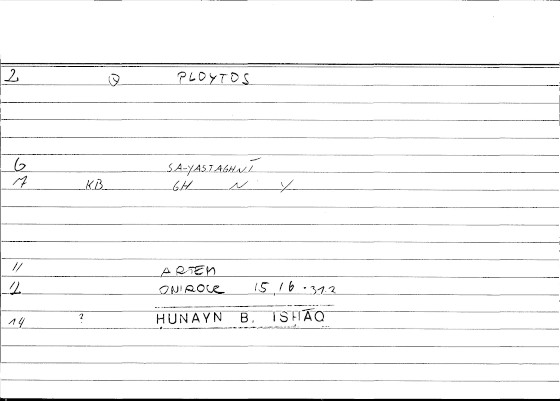 2 Q PLOYTOS
6 SA-YASTAGHNĪ
7 KB GH N Y
11 ARTEM
12 ONIROCR 15,16 · 31.2
14 ? ḤUNAYN B. ISḤĀQ